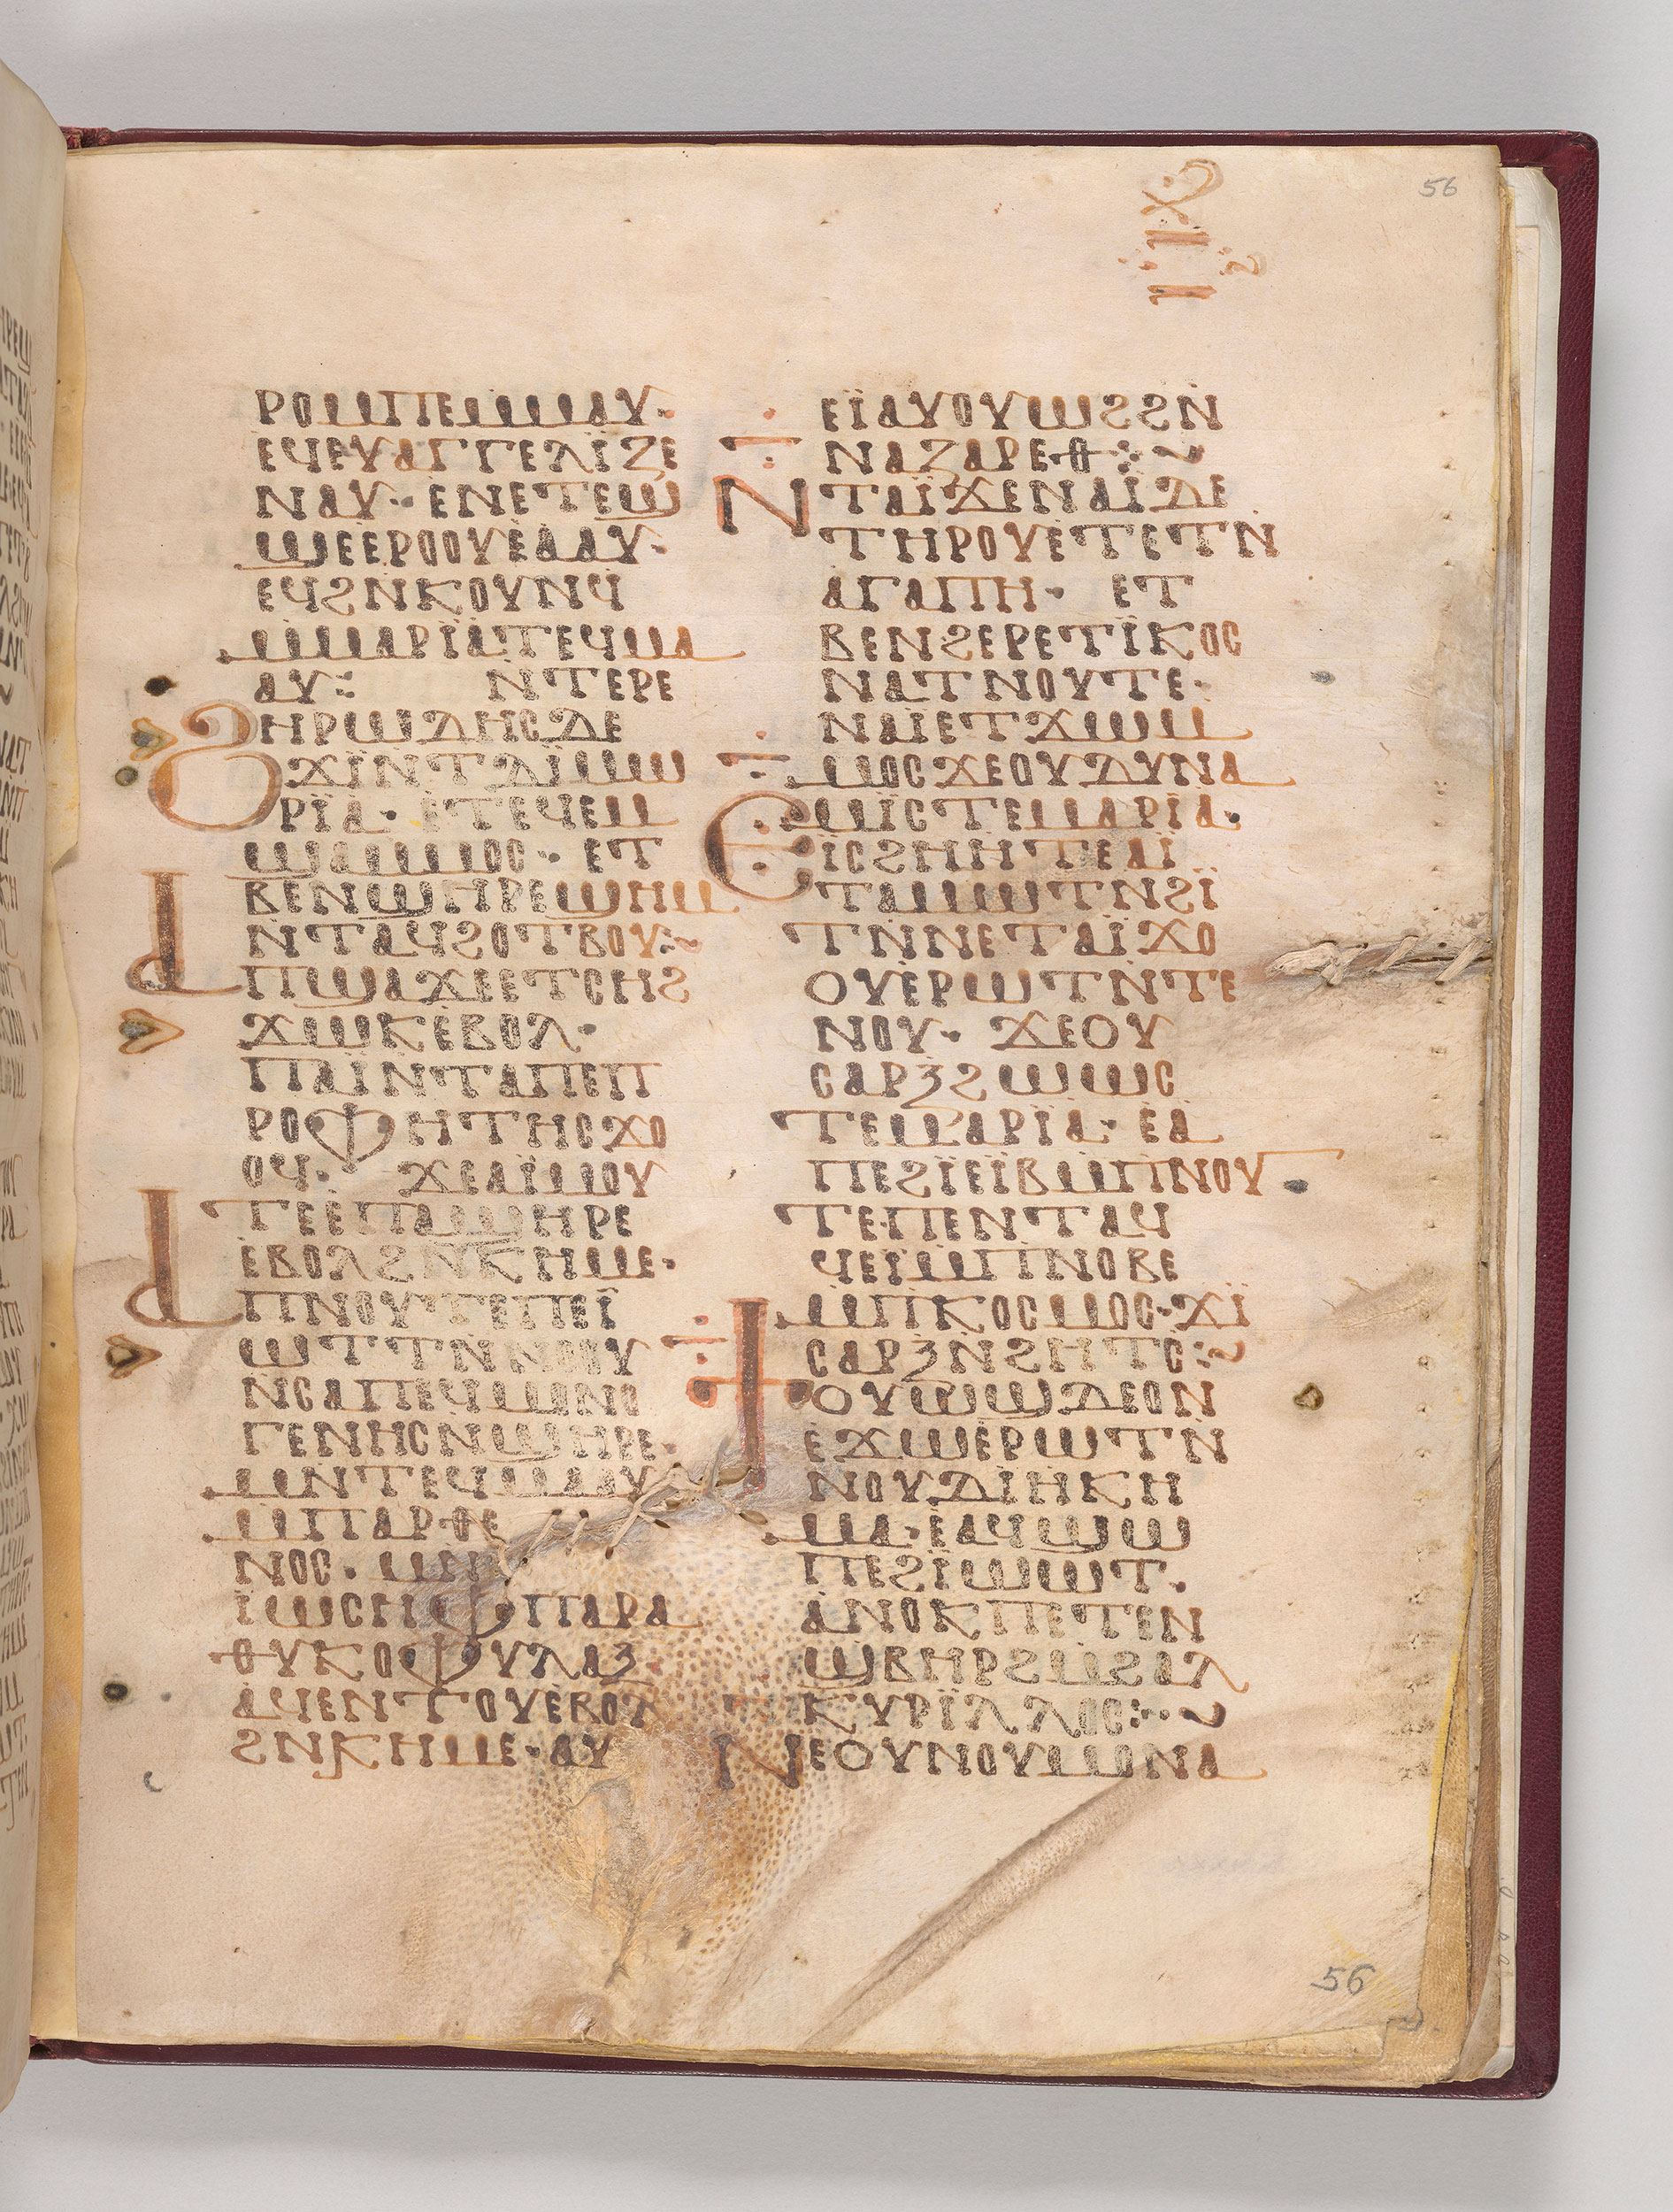 56
ⲣⲟⲙⲡⲉⲙⲙⲁⲩ·
ⲉϥⲉⲩⲁⲅⲅⲉⲗⲓⲍⲉ
ⲛⲁⲩ· ⲉⲛⲉⲧⲉϣ
ϣⲉⲉⲣⲟⲟⲩⲉⲁⲁⲩ·
ⲉϥϩⲛⲕⲟⲩⲛϥ
ⲙⲙⲁⲣⲓⲁⲧⲉϥⲙⲁ
ⲁⲩ⁖ ⲛⲧⲉⲣⲉ
ϩⲏⲣⲱⲇⲏⲥⲇⲉ
ϫⲓⲛⲧⲇⲓⲙⲱ
ⲣⲓⲁ· ⲉⲧⲉϥⲉⲙ
ϣⲁⲙⲙⲟⲥ· ⲉⲧ
ⲃⲉⲛϣⲏⲣⲉϣⲏⲙ
ⲛⲧⲁϥϩⲟⲧⲃⲟⲩ⁖~
ⲁⲡϣⲁϫⲉⲉⲧⲥⲏϩ
ϫⲱⲕⲉⲃⲟⲗ·
ⲡⲁⲓⲛⲧⲁⲡⲉⲡ
ⲣⲟⲫⲏⲧⲏⲥϫⲟ
ⲟϥ· ϫⲉⲁⲓⲙⲟⲩ
ⲧⲉⲉⲡⲁϣⲏⲣⲉ
ⲉⲃⲟⲗϩⲛⲕⲏⲙⲉ·
ⲁⲡⲛⲟⲩⲧⲉⲡⲉⲓ
ⲱⲧⲧⲛⲛⲟⲟⲩ
ⲛⲥⲁⲡⲉϥⲙⲟⲛⲟ
ⲅⲉⲛⲏⲥⲛϣⲏⲣⲉ·
ⲙⲛⲧⲉϥⲙⲁⲁⲩ
ⲙⲡⲁⲣⲑⲉ
ⲛⲟⲥ· ⲙⲛ
ⲓⲱⲥⲏⲫⲡⲁⲣⲁ
ⲑⲩⲕⲟⲫⲩⲗⲁⲝ
ⲁϥⲉⲛⲧⲟⲩⲉⲃⲟⲗ
ϩⲛⲕⲏⲙⲉ·ⲁⲩ
ⲉⲓⲁⲩⲟⲩⲱϩϩⲛ
ⲛⲁⲍⲁⲣⲉⲑ⁖~
ⲛⲧⲁⲓϫⲉⲛⲁⲓⲇⲉ
ⲧⲏⲣⲟⲩⲉⲧⲉⲧⲛ
ⲁⲅⲁⲡⲏ· ⲉⲧ
ⲃⲉⲛϩⲉⲣⲉⲧⲓⲕⲟⲥ
ⲛⲁⲧⲛⲟⲩⲧⲉ·
ⲛⲁⲓⲉⲧϫⲱⲙ
ⲙⲟⲥϫⲉⲟⲩⲇⲩⲛⲁ
ⲙⲓⲥⲧⲉⲙⲁⲣⲓⲁ·
ⲉⲓⲥϩⲏⲏⲧⲉⲁⲓ
ⲧⲁⲙⲱⲧⲛϩⲓ
ⲧⲛⲛⲉⲧⲁⲓϫⲟ
ⲟⲩⲉⲣⲱⲧⲛⲧⲉ
ⲛⲟⲩ· ϫⲉⲟⲩ
ⲥⲁⲣⲝϩⲱⲱⲥ
ⲧⲉⲙⲁⲣⲓⲁ· ⲉⲁ
ⲡⲉϩⲓⲉⲓⲃⲙⲡⲛⲟⲩ
ⲧⲉ·ⲡⲉⲛⲧⲁϥ
ϥⲉⲓⲙⲡⲛⲟⲃⲉ
ⲙⲡⲕⲟⲥⲙⲟⲥ·ϫⲓ
ⲥⲁⲣⲝⲛϩⲏⲧⲥ⁖~
ϯⲟⲩⲱϣⲇⲉⲟⲛ
ⲉϫⲱⲉⲣⲱⲧⲛ
ⲛⲟⲩⲇⲓⲏⲕⲏ
ⲙⲁ·ⲉⲁϥϣⲱ
ⲡⲉϩⲓⲱⲱⲧ·
ⲁⲛⲟⲕⲡⲉⲧⲉⲛ
ϣⲃⲏⲣϩⲙϩⲁⲗ
ⲕⲩⲣⲓⲗⲗⲟⲥ⁖~
ⲛⲉⲟⲩⲛⲟⲩⲙⲟⲛⲁ
56